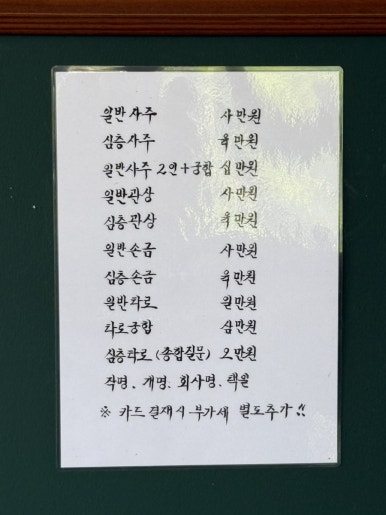 일반사주 사만원
심층사주 육만원
일반사주 2인+궁합 십만원
일반관상 사만원
심층관상 육만원
일반손금 사만원
심층손금 육만원
일반타로 일만원
타로궁합 삼만원
심층타로 (종합질문) 오만원
작명. 개명. 회사명. 택일
※ 카드결재시 부가세 별도추가!!